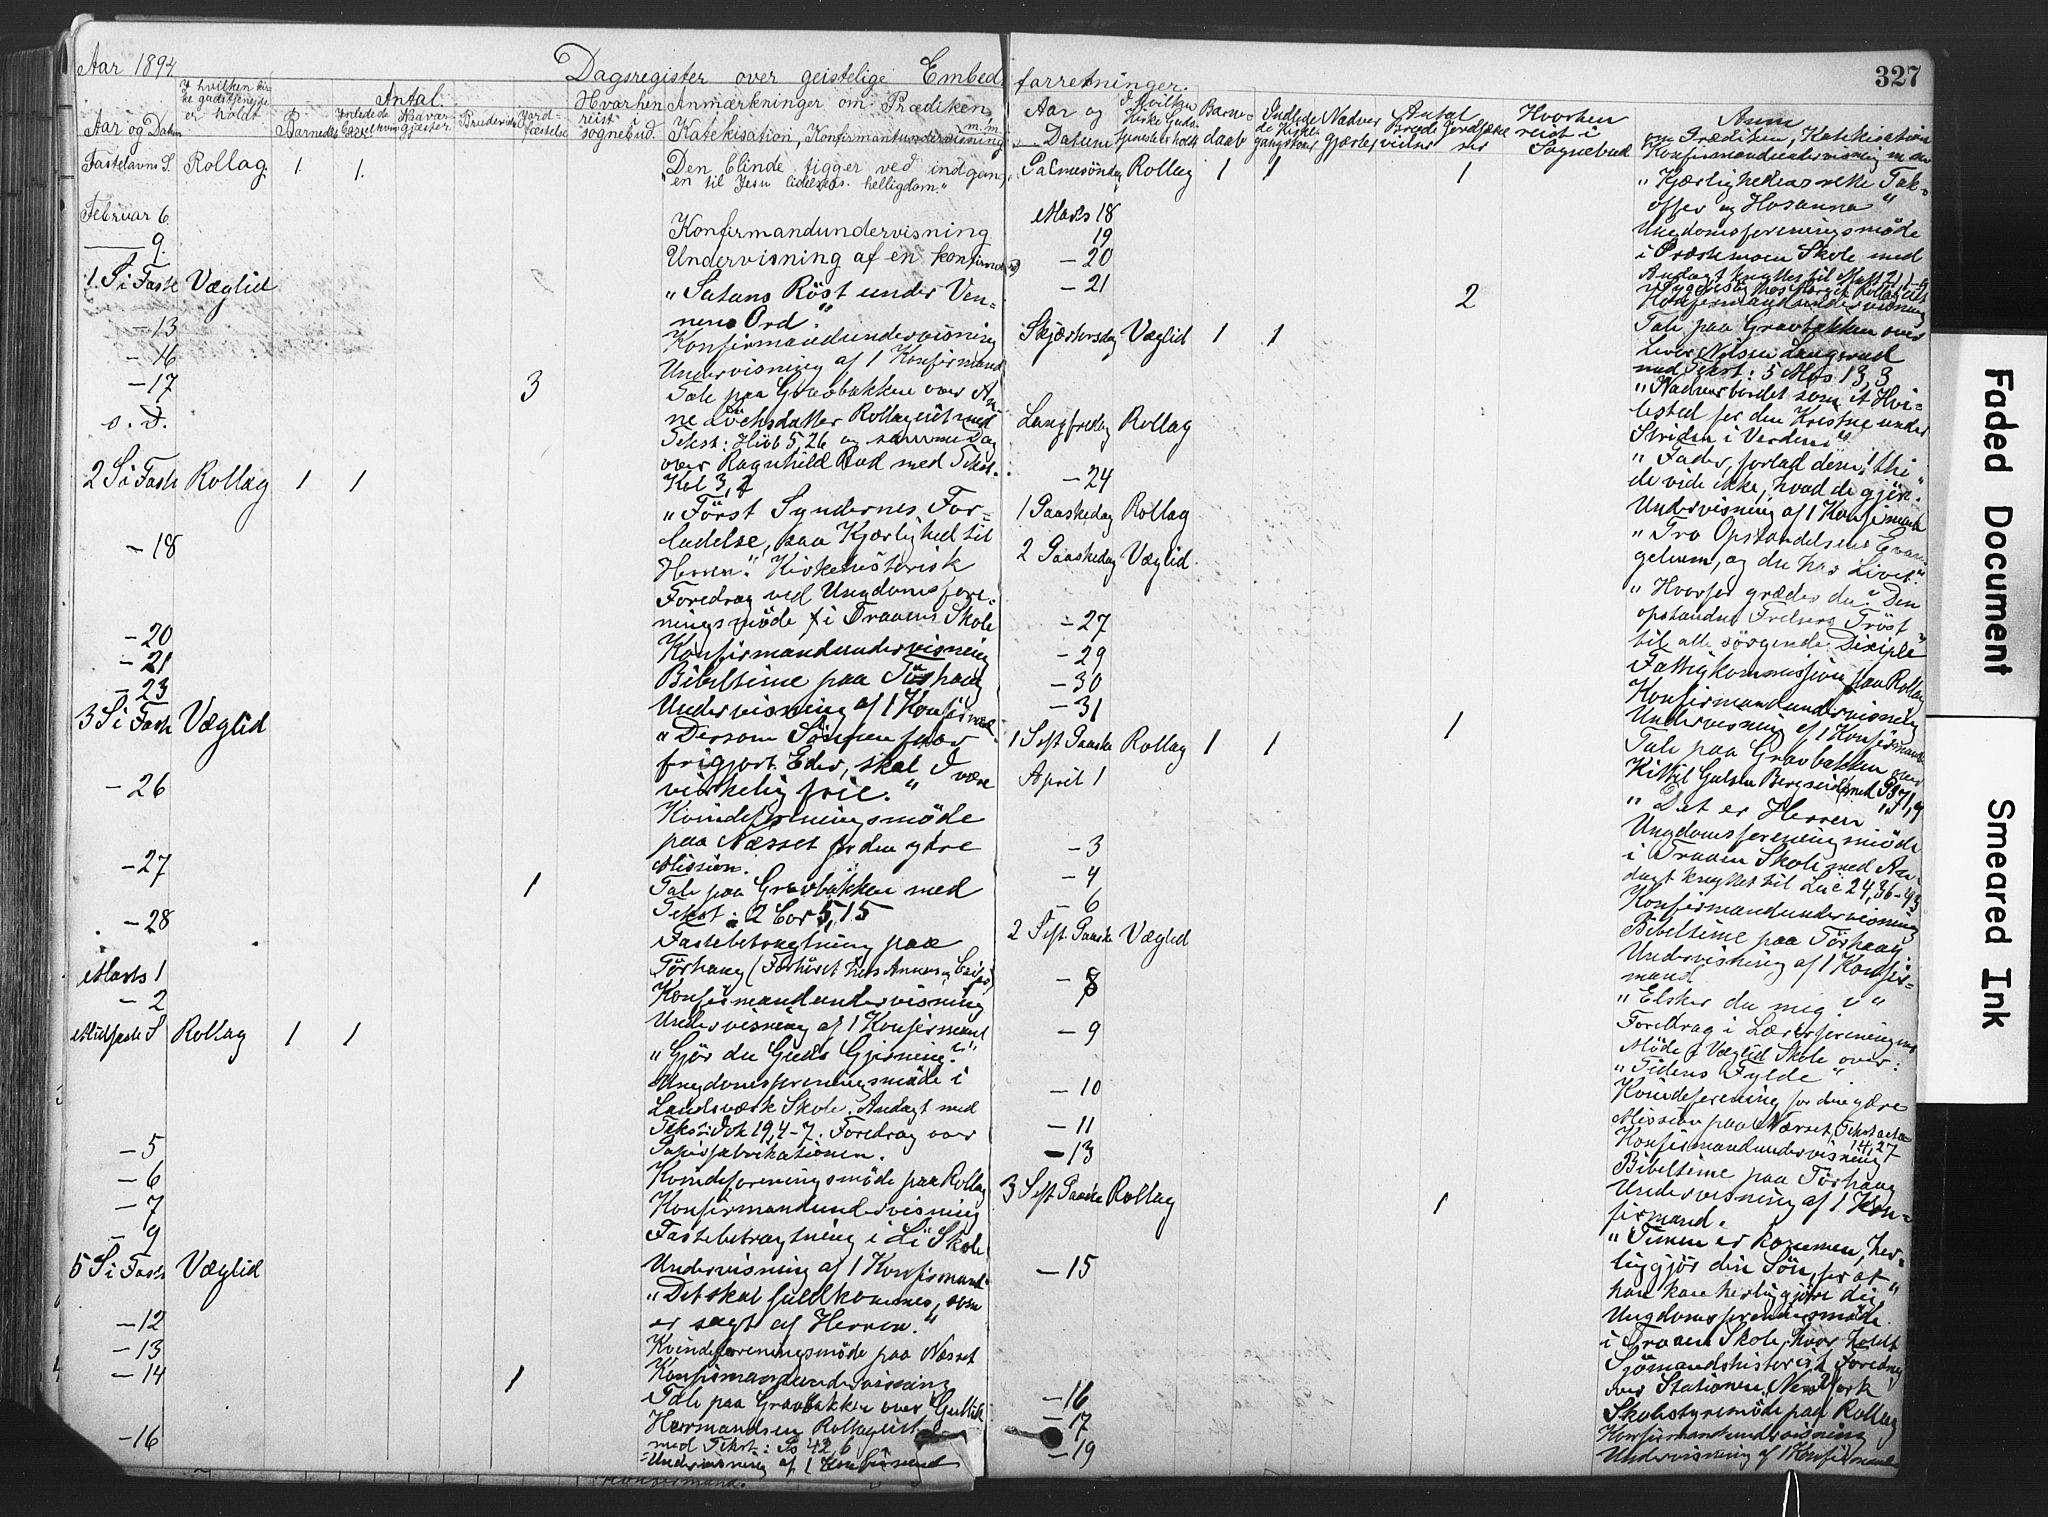 Aar 1894
Dagsregister over geistelige Embed
I hvilken Kir
ke gudstjeneste
er holdt
Antal.
Aar og Datum
Barnedaab
Hvorhen
reist i
sognebud.
Anmærkninger om Prædiken,
Katekisation, Konfirmantundervisning m.m.
Fastelavns S. Rollag. 1 1.
Den blinde tigger ved indgang
en til Jesu lidelses helligdom."
Februar 6
Konfirmandundervisning
9.
Undervisning af en konfirmand
1. S i Faste Væglid
"Satans Röst under Ven-
nens Ord."
-13
Konfirmandundervisning
-16
Undervisning af 1 Konfirmand
-17 3
Tale paa Gravbakken over An
s. D.
ne datter Rollageiet med
Tekst: Hiob 5,26 og samme Dag
over Ragnhild Rud med Tekst.
2 S i Faste Rollag 1 1
Kol 3,
"Först Syndernes For-
ladelse, saa Kjærlighed til
-18
Herren." Kirkehistorisk
Foredrag ved Ungdomsfore-
ningsmöde i Traaens Skole
-20
Konfirmandundervisning
-21
Bibeltime paa Törhaug
-23
Undervisning af 1 Konfirmand
3 S i Faste Væglid
"Dersom Sönnen faar
frigjort Eder, skal I være
-26
virkelig frie."
Kvindeforeningsmöde
paa Næsset for den ydre
-27
Mission.
1
Tale paa Gravbakken med
-28
Tekst: 2 Cor 5,15
Fastebetragtning paa
Marts 1
Törhaug (Forhöret hos Annas og
-2
Konfirmandundervisning
Midfaste S Rollag 1 1
Undervisning af 1 Konfirmand
"Gjör du Guds Gjerning?"
Ungdomsforeningsmöde i
Landsværk Skole. Andagt med
Tekst: Joh 19,4-7. Foredrag over
-5
Papirfabrikationen.
-6
Kvindeforeningsmöde paa Rollag
-7
Konfirmandundervisning
-9
Fastebetragtning i Li Skole
5 S i Faste Væglid
Undervisning af 1 Konfirmand
"Det skal fuldkommes, som
-12
er sagt af Herren."
-13
Kvindeforeningsmöde paa Næsset
-14 1
Konfirmandundervisning
Tale paa Gravbakken over Gullik
Hermandsen Rollageiet
-16
med Tekst: Ps 42,6
Undervisning af 1 Konfirmand
Konfirmand.
forretninger.
327
Aar og
Datum
I hvilken
Kirke Guds-
tjeneste er holdt
Barne-
daab
Antal
Hvorhen
reist i
Sognebud
Anm
om Prædiken, Katekisation
Konfirmandundervisning m.m.
Palmesöndag Rollag 1 1 1
"Kjærlighedens rike Tak-
offer og Hosanna"
Marts 18
Ungdomsforeningsmöde
19
i Skole med
-20
Andagt knyttet til Matt 21,1-9
-21 2
Konfirmandundervisning
Tale paa Gravbakken over
Skjærtorsdag Væglid 1 1
Nilsen Langerud
med Tekst: 5 Mos 13,3
"Nadverbordet som et Hvi-
lested for den Kristne under
Langfredag Rollag
Striden i Verden"
"Fader, forlad dem, thi
-24
de vide ikke, hvad de gjöre."
1 Paaskedag Rollag
Undervisning af 1 Konfirmand
"Tro Opstandelsens Evan-
2 Paaskedag Væglid.
gelium, og du har Livet."
"Hvorfor græder du? Den
opstandne Frelsers Tröst
-27
til alle sörgende Disciple"
-29
Fattigkommission paa Rollag
-30
Konfirmandundervisning
-31 1
Undervisning af 1 Konfirmand
1 S eft Paaske Rollag 1 1
Tale paa Gravbakken over
April 1
Kittil med Ps 71,9
"Det er Herren"
Ungdomsforeningsmöde
-3
i Traaen Skole med An-
-4
dagt knyttet til Luc 24,36-43
-6
Konfirmandundervisning
2 S eft. Paaske Væglid
Bibeltime paa Törhaug.
Undervisning af 1 Konfir-
mand
-8
"Elsker du mig?"
-9
Foredrag i Lærerforeningens
Möde i Væglid Skole over:
"Tidens Fylde".
-10
Kvindeforening for den ydre
-11
Mission paa Næsset, Tekst acta
14,27
-13
Konfirmandundervisning
Bibeltime paa Törhaug
3 S eft Paaske Rollag 1
Undervisning af 1 Kon-
firmand.
"Timen er kommen, her-
-15
liggjör din Sön, for at
han kan herliggjöre dig"
Ungdomsforeningsmöde
i Traaen Skole, hvor holdt
Sjömandshistorisk Foredrag
over Stationen NewYork
-16
Skolestyremöde paa Rollag
-17
Konfirmandundervisning
-19
Undervisning af 1 Konfirmand
Faded Document
Smeared Ink